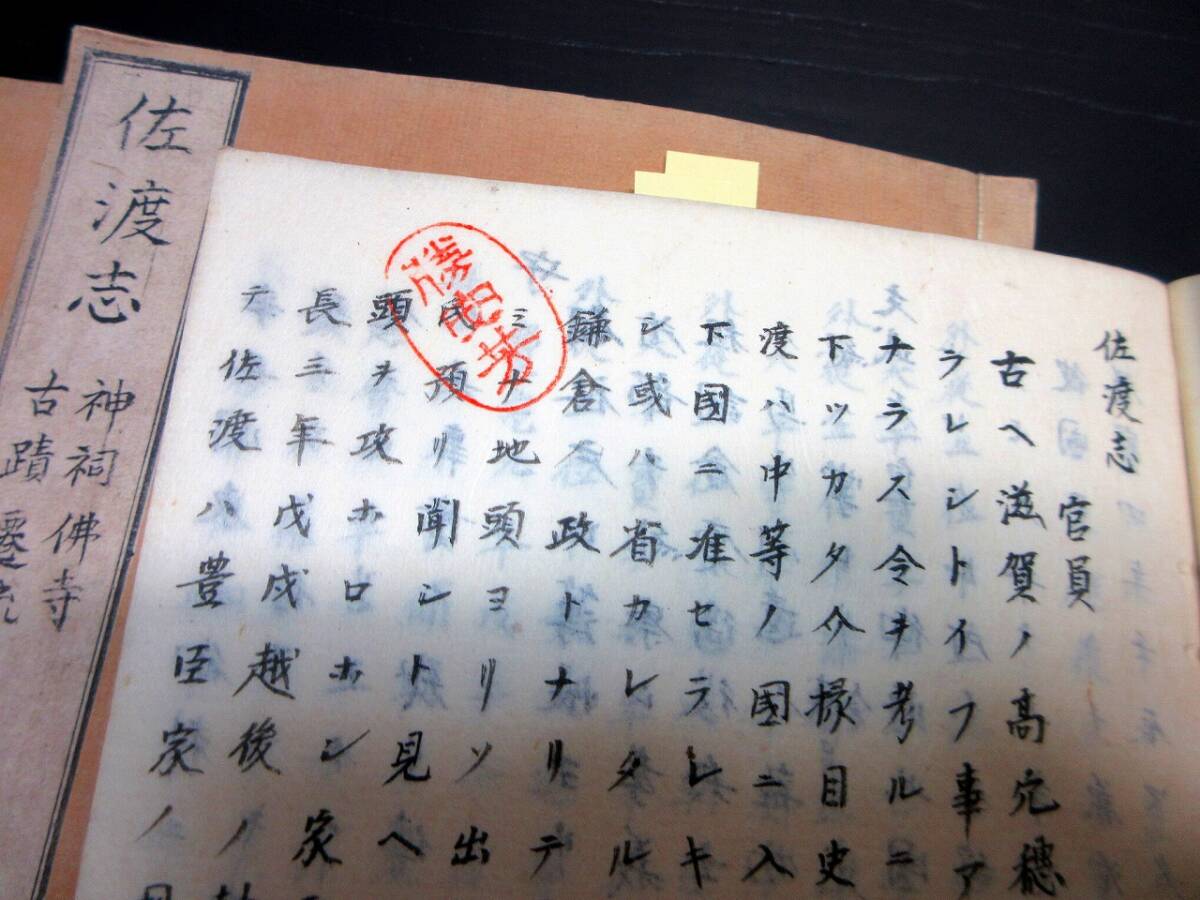 佐渡志
官員
古ヘ滋賀ノ高穴穂
ラレシトイフ事ア
ナラス令ヲ考ルニ
下ツカタ介掾目史
渡ハ中等ノ國ニ入
下國ニ准セラレキ
シ或ハ省カレタル
鎌倉ノ政トナリテ
ミナ地頭ヨリソ出
民預リ聞シト見ヘ
頭ヲ攻ホロホシ家
長三年戊戌越後ノ
テ佐渡ハ豊臣家ノ
佐渡志
神祠 佛寺
古蹟